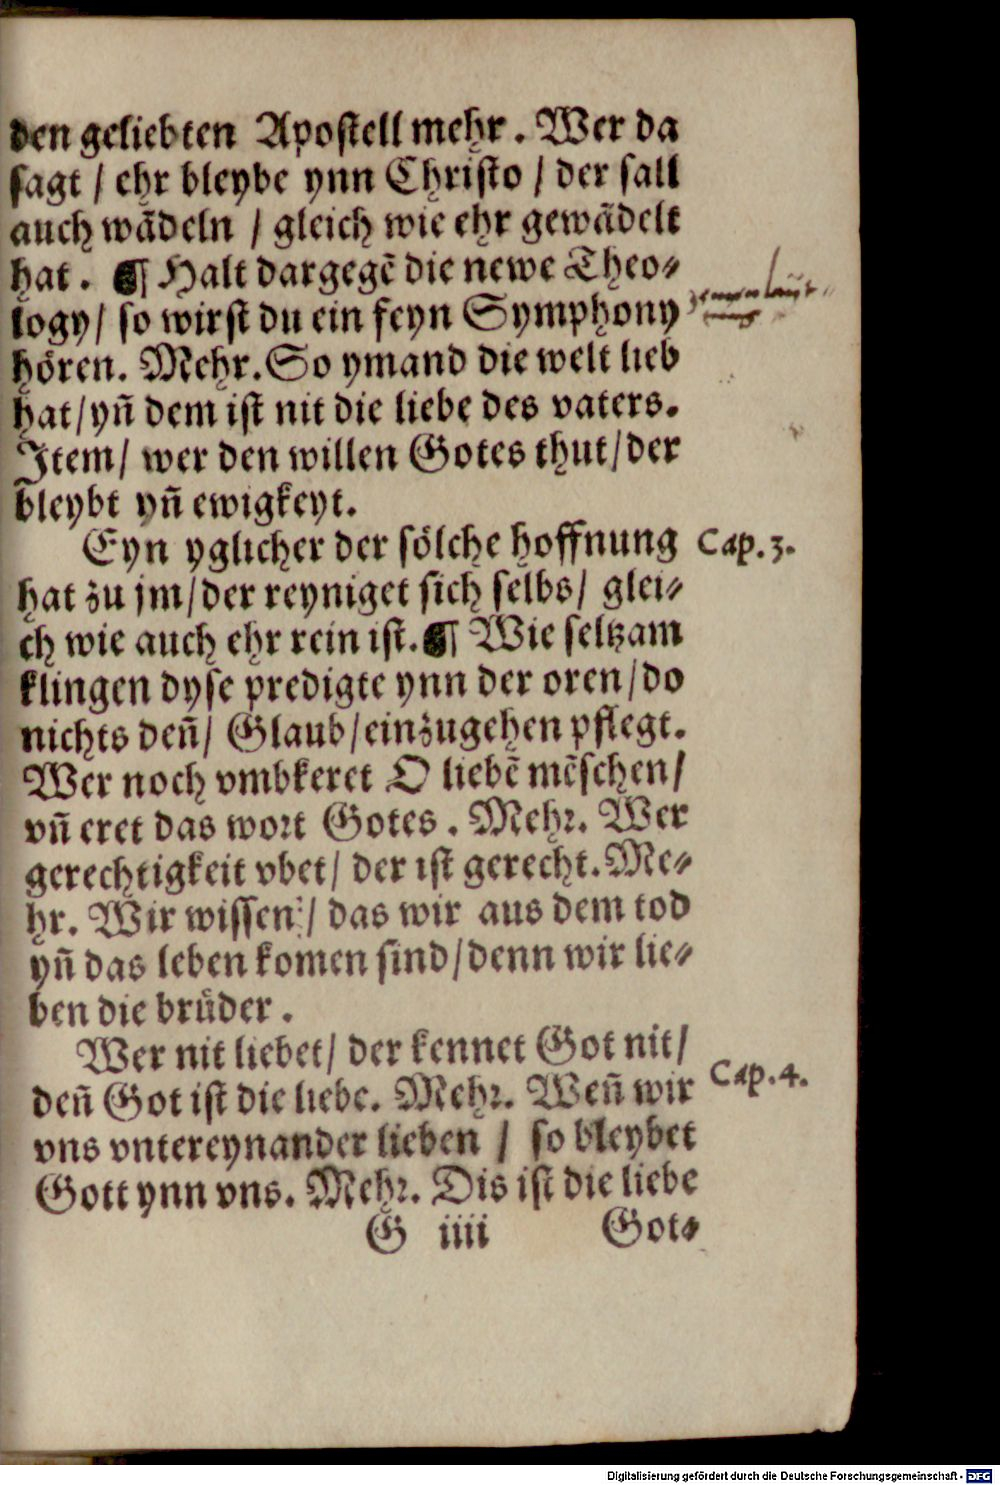 den geliebten Apostell mehr. Wer da
sagt / ehr bleybe ynn Christo / der sall
auch wãdeln / gleich wie ehr gewãdelt
hat. ¶ Halt dargegẽ die newe Theo⸗
logy / so wirst du ein feyn Symphony
hören. Mehr. So ymand die welt lieb
hat / yñ dem ist nit die liebe des vaters.
Item / wer den willen Gotes thut / der
bleybt yñ ewigkeyt.
Eyn yglicher der sölche hoffnung Cap. 3.
hat zu jm / der reyniget sich selbs / glei⸗
ch wie auch ehr rein ist. ¶ Wie seltzam
klingen dyse predigte ynn der oren / do
nichts deñ / Glaub / einzugehen pflegt.
Wer noch vmbkeret O liebẽ mẽschen /
vñ eret das wort Gotes. Mehr. Wer
gerechtigkeit vbet / der ist gerecht. Me⸗
hr. Wir wissen / das wir aus dem tod
yñ das leben komen sind / denn wir lie⸗
ben die brüder.
Wer nit liebet / der kennet Got nit /
deñ Got ist die liebe. Mehr. Weñ wir Cap. 4.
vns vntereynander lieben / so bleybet
Gott ynn vns. Mehr. Dis ist die liebe
G iiii Got⸗
Digitalisierung gefördert durch die Deutsche Forschungsgemeinschaft - DFG